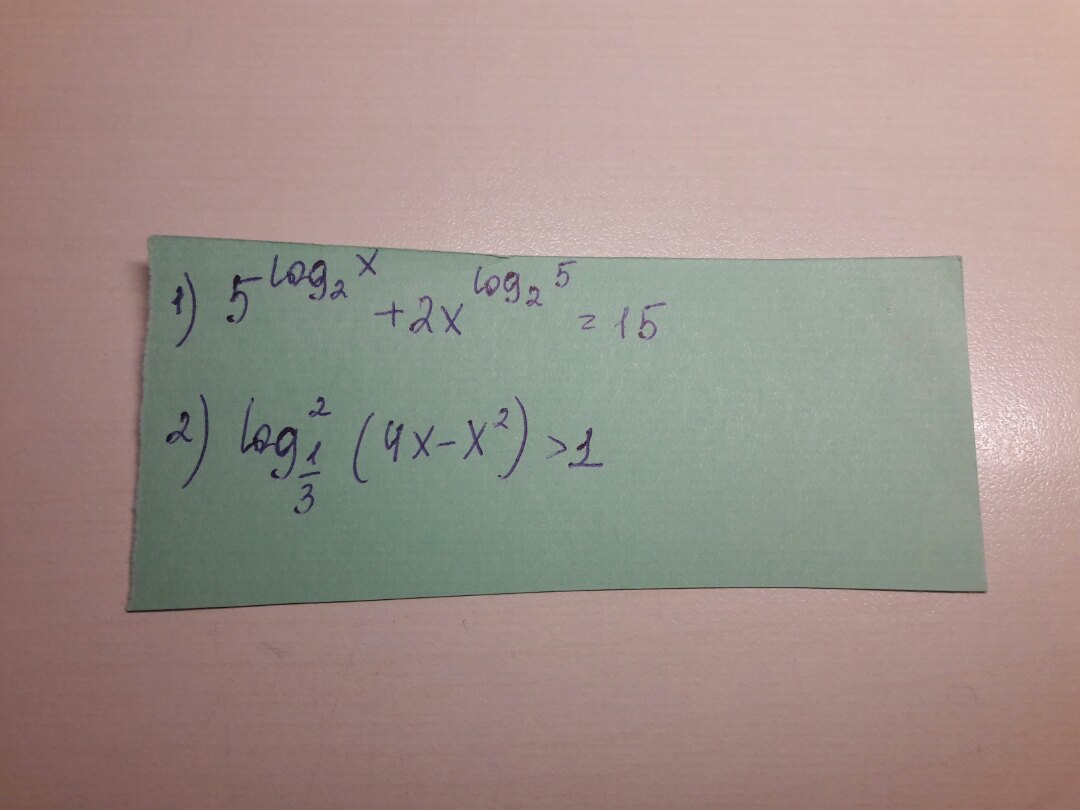 1) 5^{log_2 x} + 2x^{log_2 5} = 15
2) log^2_{1/3} (4x - x^2) > 1